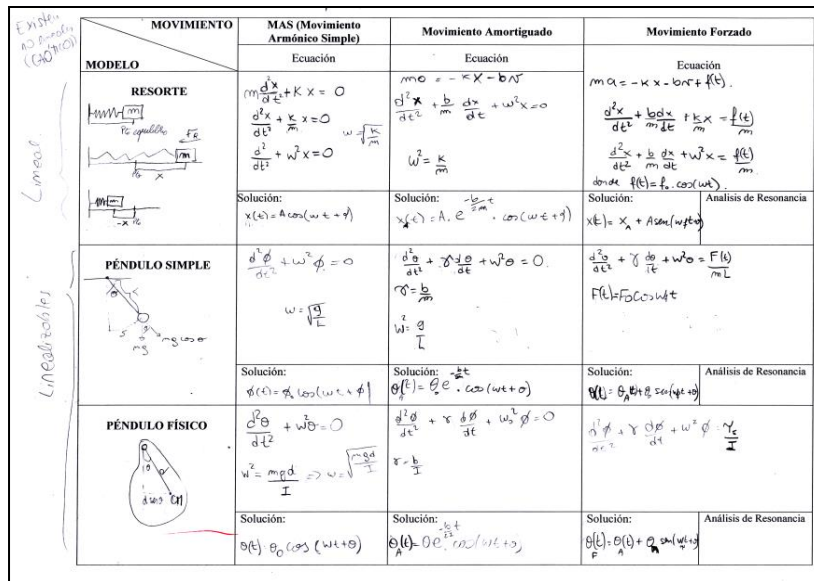 Existen
no lineales
(CAÓTICO)
MOVIMIENTO
MODELO
MAS (Movimiento
Armónico Simple)
Movimiento Amortiguado
Movimiento Forzado
Ecuación
Ecuación
Ecuación
Lineal
RESORTE
m
Pto equilibrio
F_R
m
x
m
-x
m d²x/dt² + K x = 0
d²x/dt² + K/m x = 0
w = √(K/m)
d²/dt² + w²x = 0
ma = - Kx - bv
d²x/dt² + b/m dx/dt + w²x = 0
w² = K/m
ma = - Kx - bv + f(t).
d²x/dt² + b/m dx/dt + k/m x = f(t)/m
d²x/dt² + b/m dx/dt + w²x = f(t)/m
donde f(t) = f₀ . cos(wt).
Solución:
x(t) = A cos(wt + φ)
Solución:
x_A(t) = A. e^(-b/2m t) . cos(wt + φ)
Solución:
x(t) = x_A + A sen(w_f t + φ)
Analisis de Resonancia
Linealizables
PÉNDULO SIMPLE
θ
L
mg
mg cos θ
d²φ/dt² + w²φ = 0
w = √(g/L)
d²θ/dt² + γ dθ/dt + w²θ = 0.
γ = b/m
w² = g/L
d²θ/dt² + γ dθ/dt + w²θ = F(t)/mL
F(t) = F₀ cos w_f t
Solución:
φ(t) = φ₀ cos(wt + φ)
Solución:
θ_A(t) = θ₀ e^(-b/2m t) . cos(wt + θ)
Solución:
θ(t) = θ_A(t) + θ sen(w_f t + θ)
Análisis de Resonancia
PÉNDULO FÍSICO
θ
d
d sen θ
CM
d²θ/dt² + w²θ = 0
w² = mgd/I => w = √(mgd/I)
d²φ/dt² + γ dφ/dt + w₀²φ = 0
γ = b/I
d²φ/dt² + γ dφ/dt + w²φ = τ_s/I
Solución:
θ(t) = θ₀ cos (wt + θ)
Solución:
θ_A(t) = θ e^(-b/2I t) . cos(wt + θ)
Solución:
θ_F(t) = θ_A(t) + θ sen(wt + θ)
Análisis de Resonancia